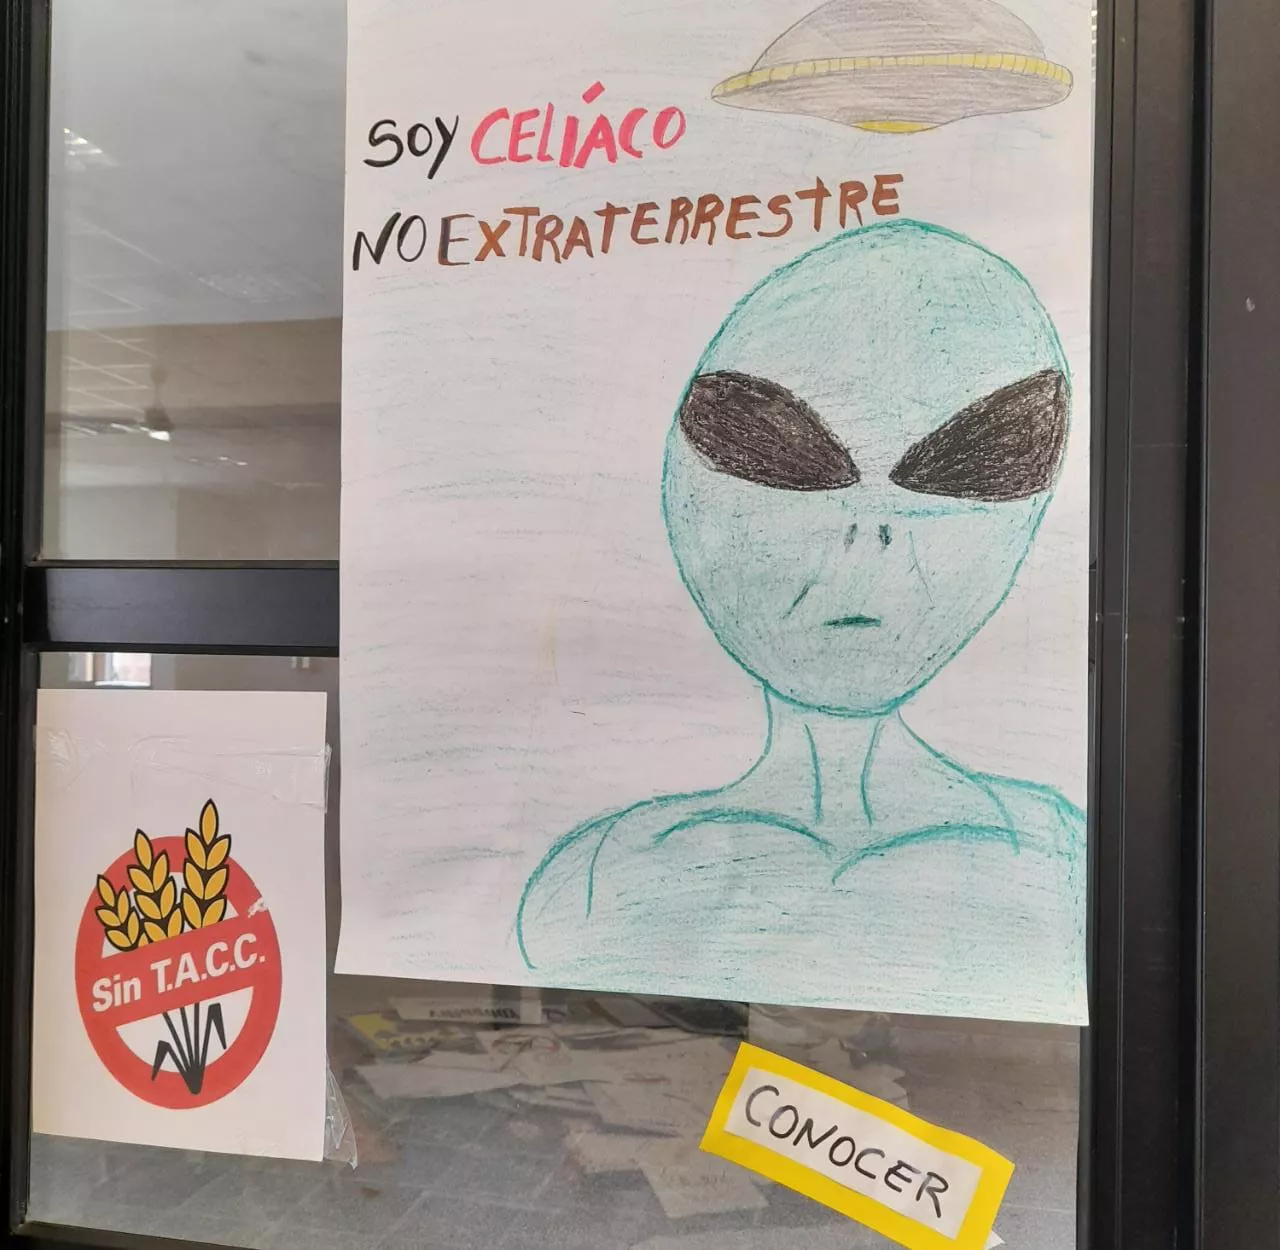 SOY CELÍACO
NO EXTRATERRESTRE
Sin T.A.C.C.
CONOCER